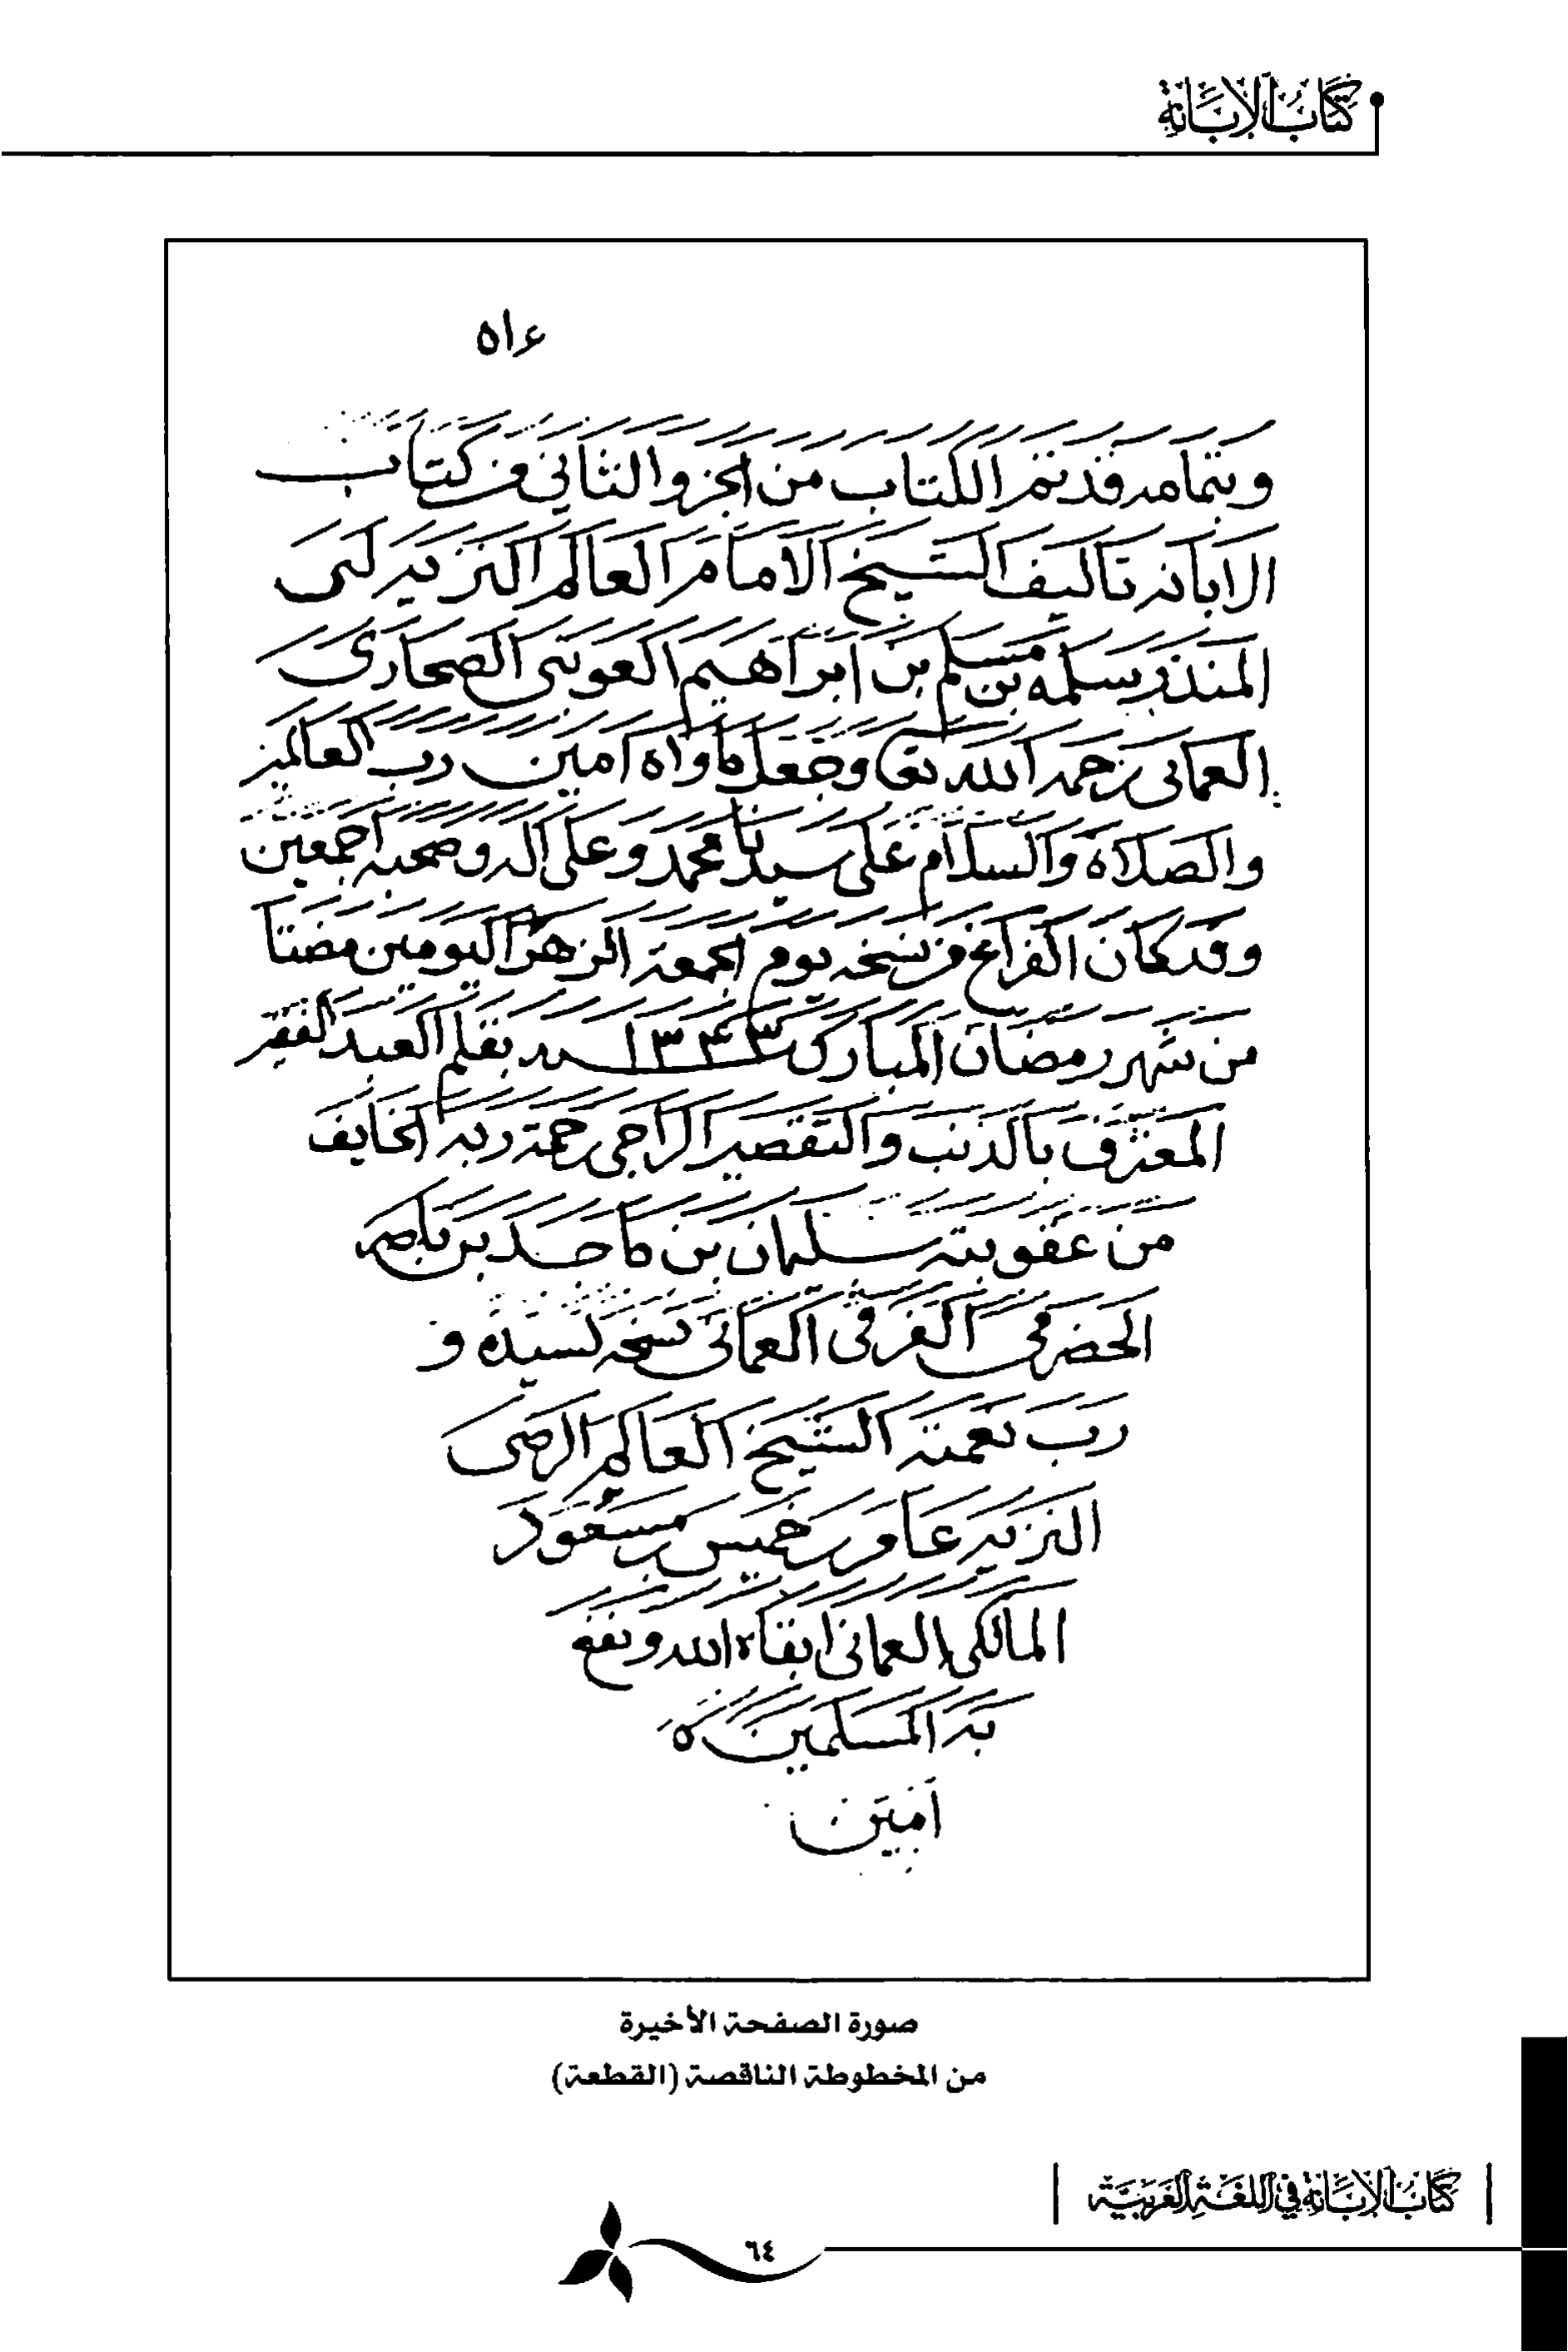 كتاب الإبانة
٥١٤
وبتمامه قد تم الكتاب من الجزو الثاني من كتاب
الابانه تاليف الشيخ الامام العالم النزيه ابي
المنذر سلمه بن مسلم بن ابراهيم العوتبي الصحاري
العماني رحمه الله تعا وجعل ماواه امين رب العالمين
والصلاة والسلام على سيدنا محمد وعلى اله وصحبه اجمعين
وقد كان الفراغ من نسخه يوم الجمعة الزهرا ليومين مضتا
من شهر رمضان المبارك ١٣٤٣ سنه بقلم العبد الفقير
المعترف بالذنب والتقصير الراجي رحمة ربه الخايف
من عقوبته سليمان بن ماجد بن ناصر
الحضرمي الغرفي العماني نسخه لسيده و
رب نعمته الشيخ العالم الرضي
النزيه عامر بن خميس بن مسعود
المالكي العماني ابقاه الله ونفع
به المسلمين ه
امين
صورة الصفحة الأخيرة
من المخطوطة الناقصة (القطعة)
كتاب الإبانة في اللغة العربية
٦٤